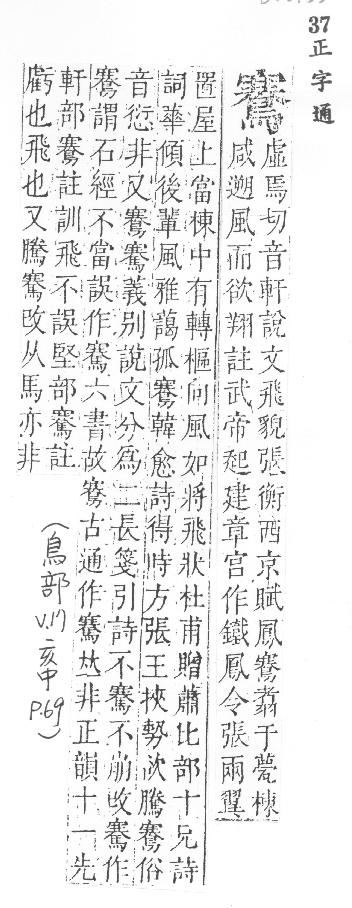 37正字通
鶱虛焉切音軒說文飛貌張衡西京賦鳳鶱翥于甍棟
咸遡風而欲翔註武帝起建章宮作鐵鳳令張兩翼
置屋上當棟中有轉樞向風如將飛狀杜甫贈蕭比部十兄詩
詞華傾後輩風雅藹孤鶱韓愈詩得時方張王挾勢欲騰鶱俗
音愆非又鶱騫義別說文分爲二長箋引詩不騫不崩改鶱作
騫謂石經不當誤作騫六書故鶱古通作騫𠀤非正韻十一先
軒部鶱註訓飛不誤堅部騫註
虧也飛也又騰騫改从馬亦非
(鳥部
V.17 亥中
P.69)